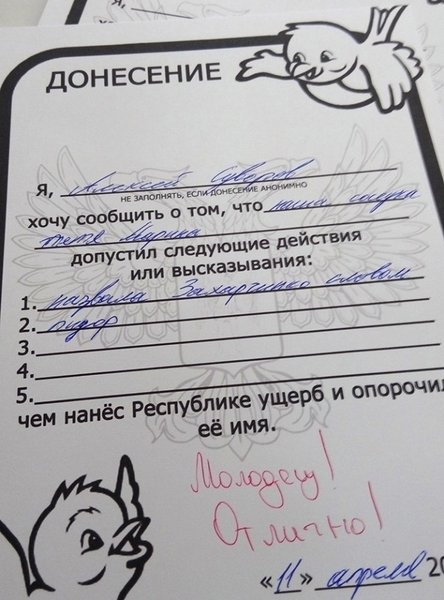 Я,
ДОНЕСЕНИЕ
Я, Алексей Суворов
НЕ ЗАПОЛНЯТЬ, ЕСЛИ ДОНЕСЕНИЕ АНОНИМНО
хочу сообщить о том, что наша
тетя Марина
допустил следующие действия
или высказывания:
1. назвала Захарченко словом
2. пидор
3.
4.
5.
чем нанёс Республике ущерб и опорочил
её имя.
Молодец!
Отлично!
«11» апреля 20